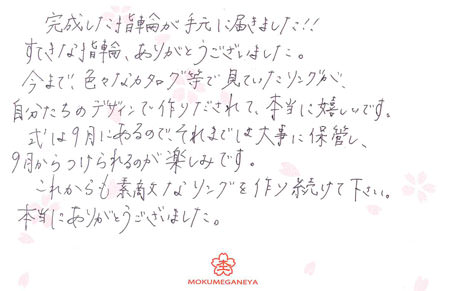 完成した指輪が手元に届きました!!
すてきな指輪、ありがとうございました。
今まで、色々なカタログ等で見ていたリングが、
自分たちのデザインで作りだされて、本当に嬉しいです。
式は9月にあるのでそれまでは大事に保管し、
9月からつけられるのが楽しみです。
これからも素敵なリングを作り続けて下さい。
本当にありがとうございました。
MOKUMEGANEYA